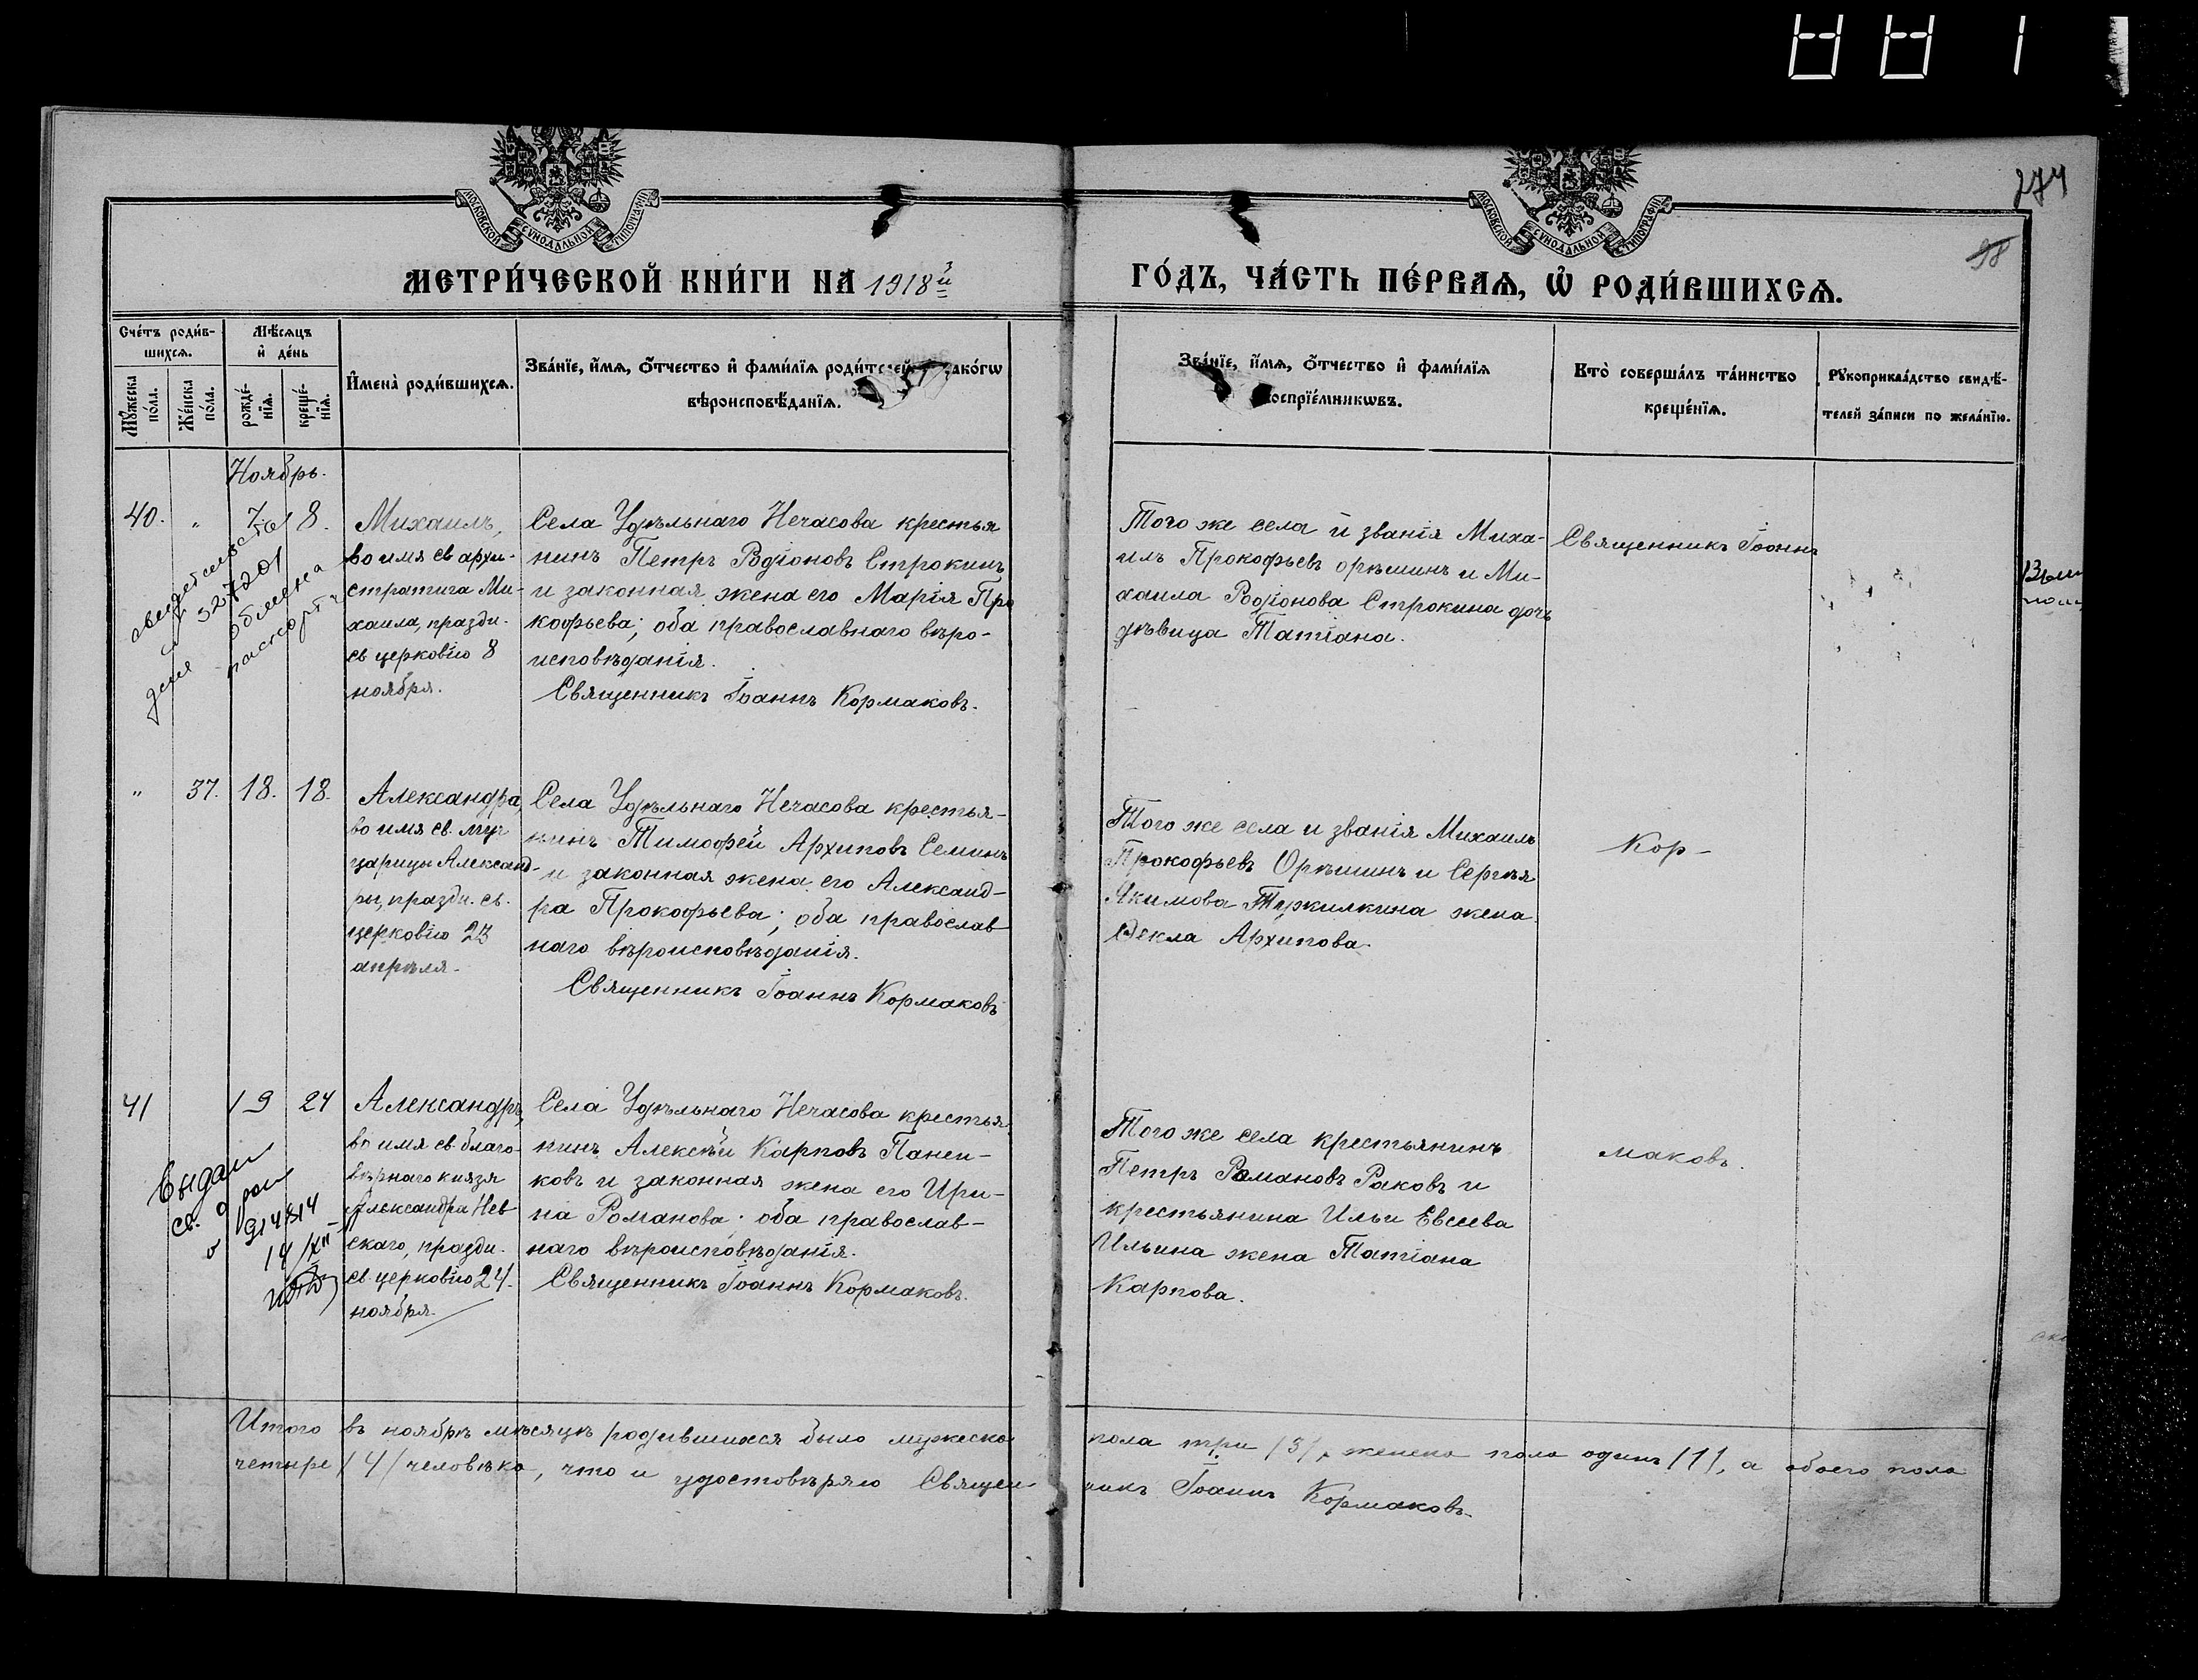 274
98
МОСКОВСКОЙ СУНОДАЛЬНОЙ ТИПОГРАФІИ
МОСКОВСКОЙ СУНОДАЛЬНОЙ ТИПОГРАФІИ
МЕТРИ́ЧЕСКОЙ КНИ́ГИ НА 1918й
ГО́ДЪ, ЧА́СТЬ ПЕ́РВАѦ, Ѡ҆ РОДИ́ВШИХСѦ.
Сче́тъ роди́в-
шихсѧ.
Мꙋ́жеска по́ла.
Же́нска по́ла.
Мѣ́сѧцъ
и҆ де́нь
рожде́-
нїѧ.
креще́-
нїѧ.
И҆мена̀ роди́вшихсѧ.
Зва́нїе, и҆́мѧ, ѻ҆́тчество и҆ фами́лїѧ роди́телей ако́гѡ
вѣроисповѣ́данїѧ.
Зва́нїе, и҆́мѧ, ѻ҆́тчество и҆ фами́лїѧ
воспрїе́мникѡвъ.
Кто̀ соверша́лъ та́инство
креще́нїѧ.
Рꙋкоприкла́дство свидѣ́-
телей за́писи по жела́нїю.
Ноябрь.
40. „ 7 8.
Михаилъ,
во имя св архи-
стратига Ми-
хаила, праздн.
св церковію 8
ноября.
Села Удѣльнаго Нечасова крестья
нинъ Петръ Родіоновъ Строкинъ
и законная жена его Марія Про
кофьева; оба православнаго вѣро-
исповѣданія.
Священникъ Іоаннъ Кормаковъ.
Того же села и званія Миха-
илъ Прокофьевъ Орѣшинъ и Ми-
хаила Родіонова Строкина дочь
дѣвица Татіана.
Священникъ Іоаннъ
свидетельство
327201
обмена
паспорта
„ 37. 18. 18.
Александра,
во имя св. муч
царицы Александ-
ры, праздн. св.
церковію 23
апрѣля.
Села Удѣльнаго Нечасова крестья-
нинъ Тимофей Архиповъ Семинъ
и законная жена его Александ-
ра Прокофьева; оба православ
наго вѣроисповѣданія.
Священникъ Іоаннъ Кормаковъ
Того же села и званія Михаилъ
Прокофьевъ Орѣшинъ и Сергѣя
Якимова Тужилкина жена
Ѳекла Архипова.
Кор-
41 19 24
Александръ,
во имя св. благо-
вѣрнаго князя
Александра Нев
скаго, праздн.
св. церковію 24.
ноября.
Села Удѣльнаго Нечасова крестья
нинъ Алексѣй Карповъ Панен-
ковъ и законная жена его Ири-
на Романова; оба православ-
наго вѣроисповѣданія.
Священникъ Іоаннъ Кормаковъ.
Того же села крестьянинъ
Петръ Романовъ Раковъ и
крестьянина Ильи Евсеева
Ильина жена Татіана
Карпова.
маковъ.
Выдан
св. о рож
914814
14/XII
Итого въ ноябрѣ мѣсяцѣ родившихся было мужеска пола три /3/, женска пола одинъ /1/, а обоего пола
четыре /4/ человѣка, что и удостовѣряю Священ- никъ Іоаннъ Кормаковъ.